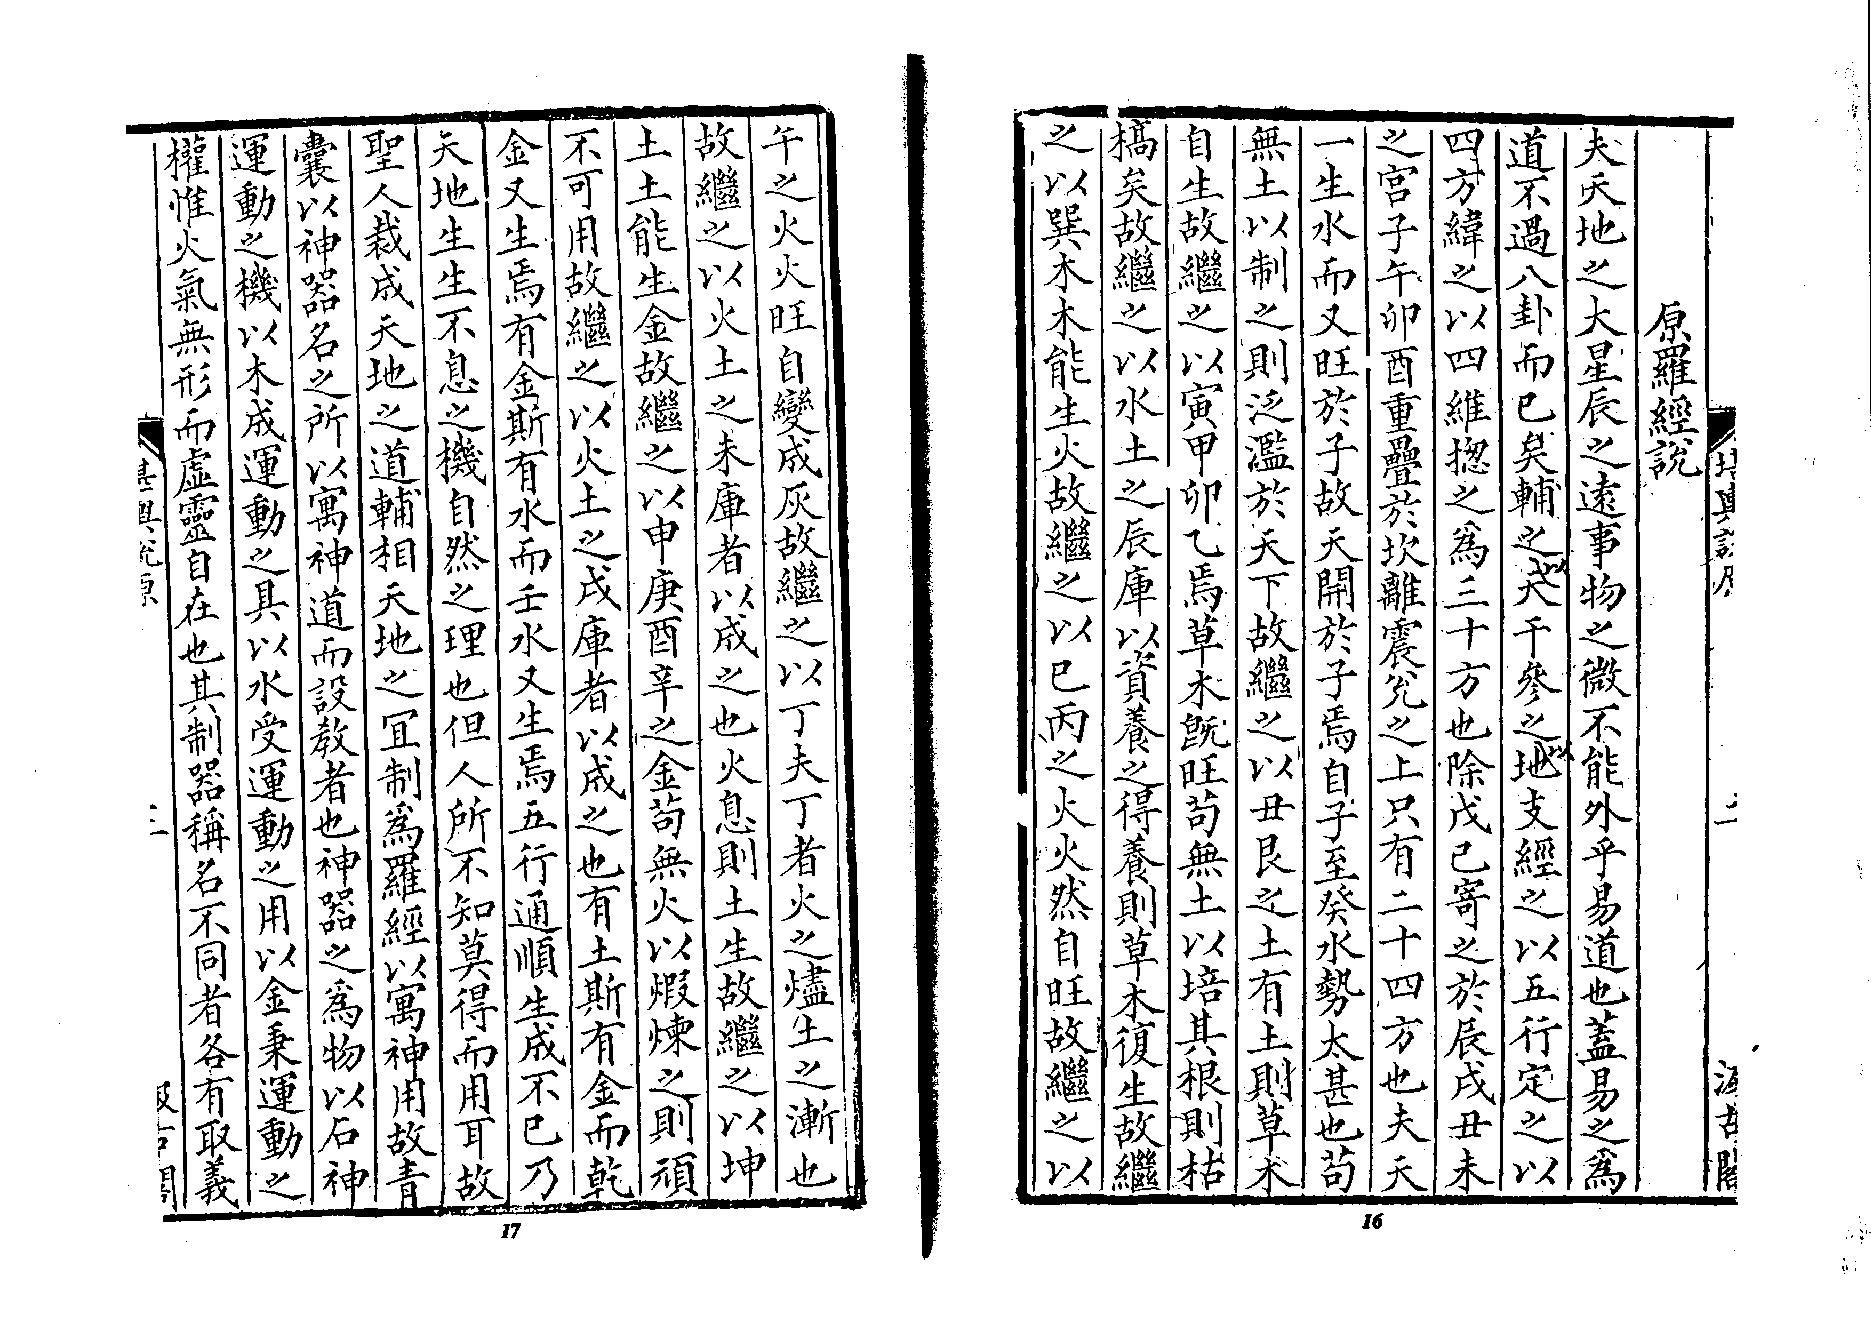 原羅經說
夫天地之大星辰之遠事物之微不能外乎易道也蓋易之為
道不過八卦而已矣輔之以天干參之以地支經之以五行定之以
四方緯之以四維揔之為三十方也除戊己寄之於辰戌丑未
之宮子午卯酉重疊於坎離震兊之上只有二十四方也夫天
一生水而又旺於子故天開於子焉自子至癸水勢太甚也苟
無土以制之則泛濫於天下故繼之以丑艮之土有土則草木
自生故繼之以寅甲卯乙焉草木旣旺苟無土以培其根則枯
槁矣故繼之以水土之辰庫以資養之得養則草木復生故繼
之以巽木木能生火故繼之以巳丙之火火然自旺故繼之以
16
午之火火旺自變成灰故繼之以丁夫丁者火之燼土之漸也
故繼之以火土之未庫者以成之也火息則土生故繼之以坤
土土能生金故繼之以申庚酉辛之金苟無火以煆煉之則頑
不可用故繼之以火土之戌庫者以成之也有土斯有金而乾
金又生焉有金斯有水而壬水又生焉五行通順生成不已乃
天地生生不息之機自然之理也但人所不知莫得而用耳故
聖人裁成天地之道輔相天地之宜制為羅經以寓神用故青
囊以神器名之所以寓神道而設教者也神器之為物以石神
運動之機以木成運動之具以水受運動之用以金秉運動之
權惟火氣無形而虛靈自在也其制器稱名不同者各有取義
17